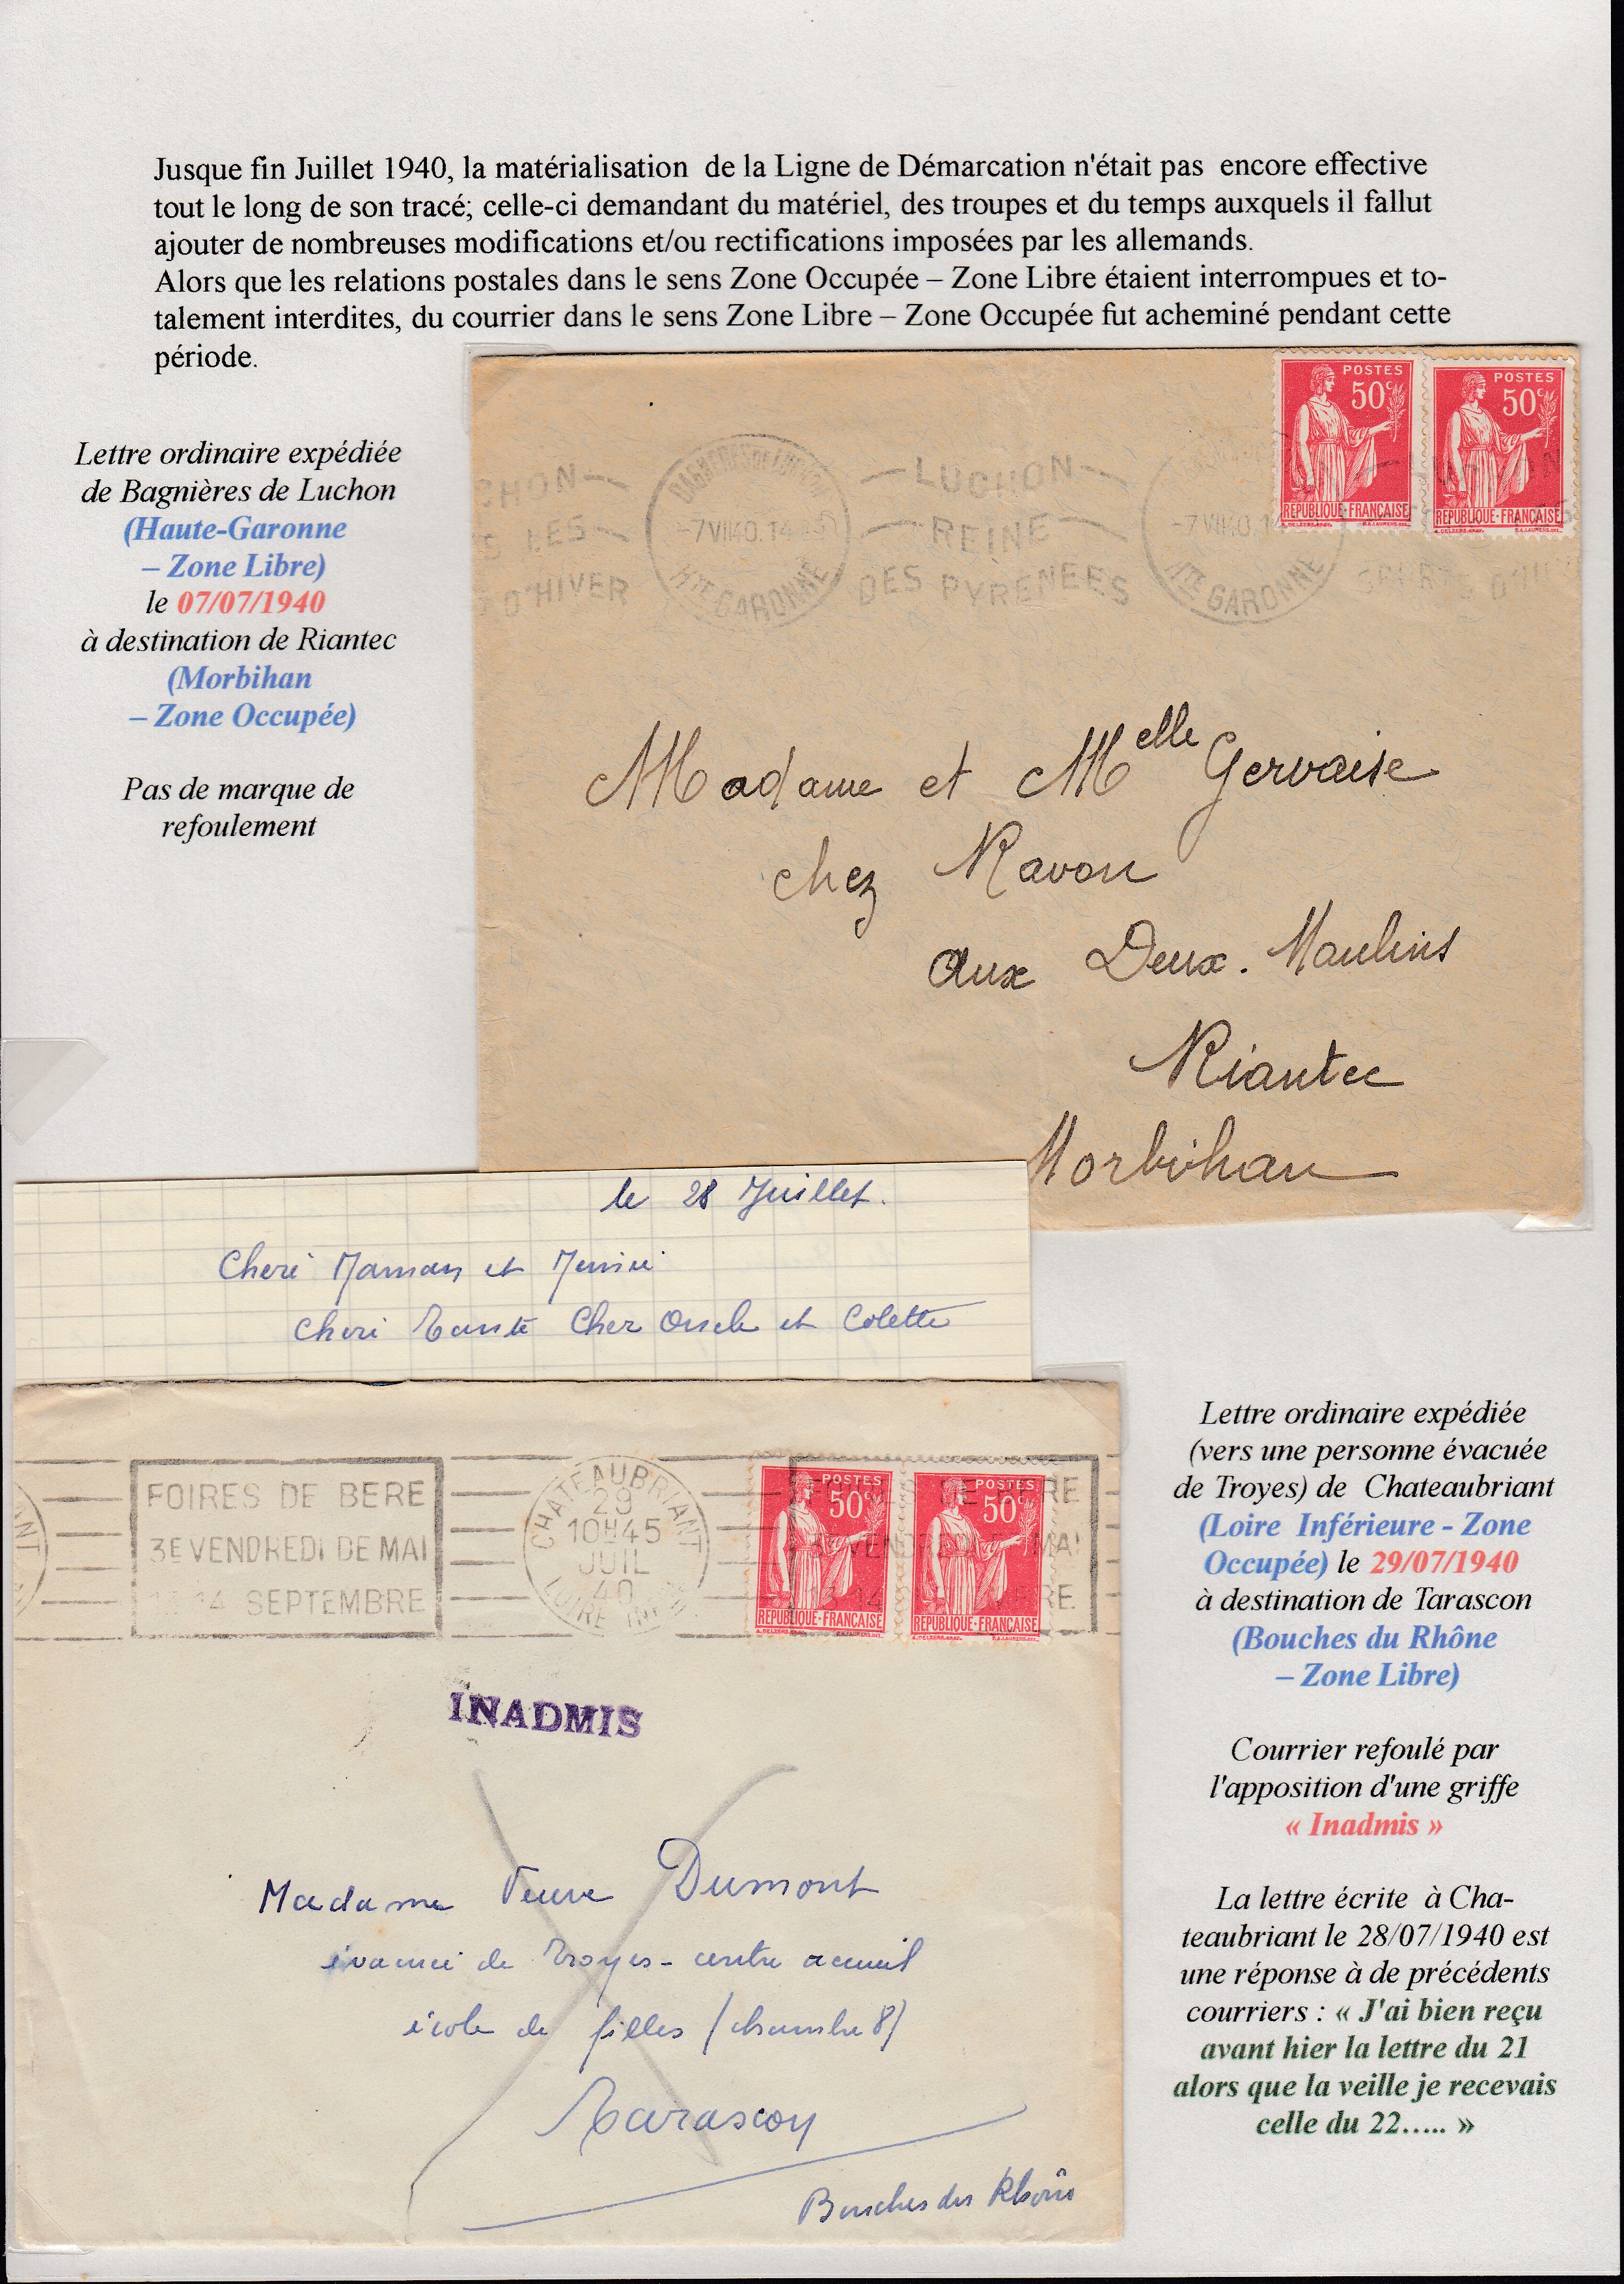 Jusque fin Juillet 1940, la matérialisation de la Ligne de Démarcation n'était pas encore effective
tout le long de son tracé; celle-ci demandant du matériel, des troupes et du temps auxquels il fallut
ajouter de nombreuses modifications et/ou rectifications imposées par les allemands.
Alors que les relations postales dans le sens Zone Occupée – Zone Libre étaient interrompues et to-
talement interdites, du courrier dans le sens Zone Libre – Zone Occupée fut acheminé pendant cette
période.
Lettre ordinaire expédiée
de Bagnières de Luchon
(Haute-Garonne
– Zone Libre)
le 07/07/1940
à destination de Riantec
(Morbihan
– Zone Occupée)
Pas de marque de
refoulement
POSTES
50c
REPUBLIQUE-FRANÇAISE
POSTES
50c
REPUBLIQUE-FRANÇAISE
CHON
S LES
D'HIVER
BAGNERES DE LUCHON
-7 VII 40. 14
HTE GARONNE
LUCHON
REINE
DES PYRENEES
-7 VII 40. 1
HTE GARONNE
Madame et Melle Gervaise
chez Ravon
aux Deux. Moulins
Riantec
Morbihan
le 28 Juillet.
Cheri Maman et
Cheri Tante Cher Oncle et Colette
FOIRES DE BERE
3E VENDREDI DE MAI
14 SEPTEMBRE
CHATEAUBRIANT
29
10H45
JUIL
40
LOIRE INF
POSTES
50c
REPUBLIQUE-FRANÇAISE
POSTES
50c
REPUBLIQUE-FRANÇAISE
INADMIS
Madame Veuve Dumont
évacuée de Troyes - centre accueil
école de filles (chambre 8)
Tarascon
Bouches du Rhône
Lettre ordinaire expédiée
(vers une personne évacuée
de Troyes) de Chateaubriant
(Loire Inférieure - Zone
Occupée) le 29/07/1940
à destination de Tarascon
(Bouches du Rhône
– Zone Libre)
Courrier refoulé par
l'apposition d'une griffe
« Inadmis »
La lettre écrite à Cha-
teaubriant le 28/07/1940 est
une réponse à de précédents
courriers : « J'ai bien reçu
avant hier la lettre du 21
alors que la veille je recevais
celle du 22….. »